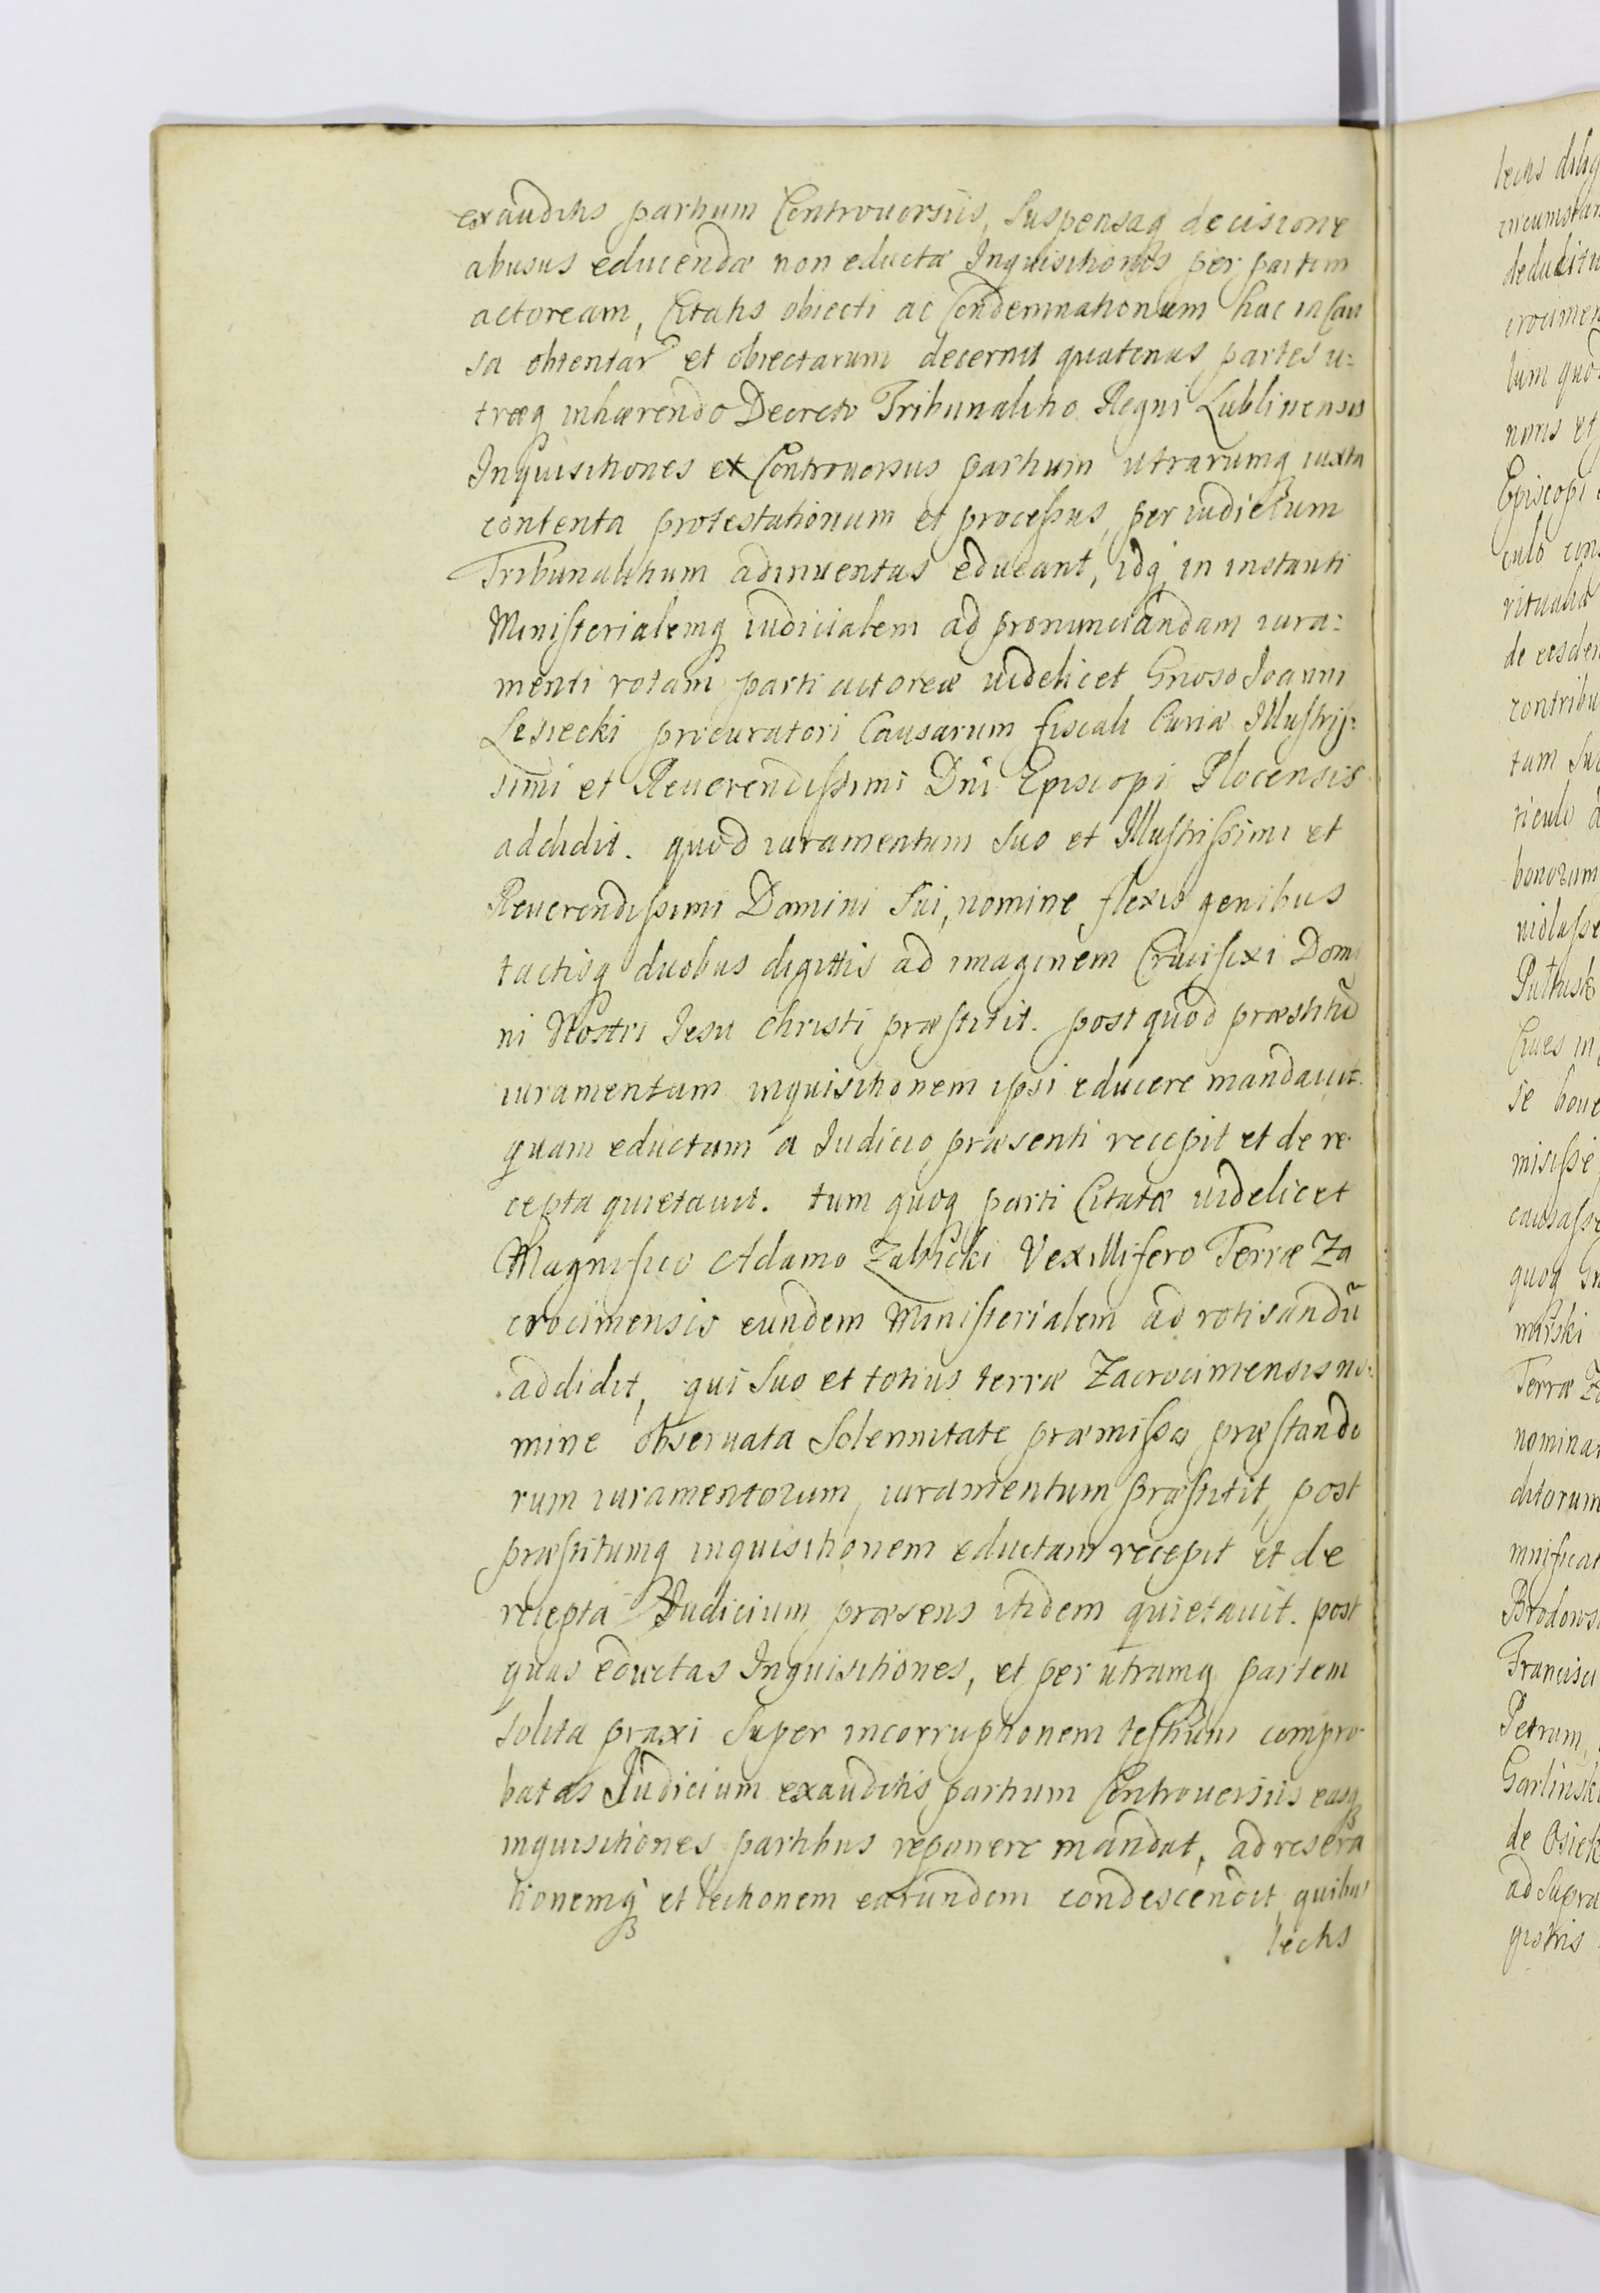 exauditis partium Controuersiis, Suspensaq decisione
abusus educendæ non eductæ Inquisitionis per partem
actoream, Citatis obiecti ac Condemnationum hac in Cau
sa obtentar et obiectarum decernit quatenus partes u:
træq inhærendo Decreto Tribunalitio Regni Lublinensis
Inquisitiones et Controuersus partium utrarumq iuxta
contenta protestationum et processus, per iudicium
Tribunalitium adinuentas educant, idq in instanti
Ministerialemq iudicialem ad pronunciandam iura:
menti rotam parti actoreæ uidelicet Gnoso Joanni
Lesiecki procuratori Causarum fiscali Curiæ Illustris:
simi et Reuerendissimi Dni Episcopi Plocensis
addidit. quod iuramentum Suo et Illustrissimi et
Reuerendissimi Domini Sui, nomine flexis genibus
tactisq duobus digittis ad imaginem Crucifixi Domi
ni Nostri Jesu Christi præstitit. post quod præstitũ
iuramentum inquisitionem ipsi educere mandauit.
quam eductam a Iudicio præsenti recepit et de re
cepta quietauit. tum quoq parti Citatæ uidelicet
Magnifico Adamo Zabicki Vexillifero Terræ Za
crocimensis eundem Ministerialem ad rotisandũ
addidit, qui Suo et totius terræ Zacrocimensis no:
mine obseruata Solennitate præmissa præstando
rum iuramentorum, iuramentum præstitit, post
præstitumq inquisitionem eductam recepit et de
recepta Iudicium præsens itidem quietauit. post
quas eductas Inquisitiones, et per utramq partem
Solita praxi Super incorruptionem testium compro
batas Judicium exauditis partium Controuersiis easq
inquisitiones partibus reponere mandat, ad resera
tionemq et lectionem earundem condescendit quibus
lectis